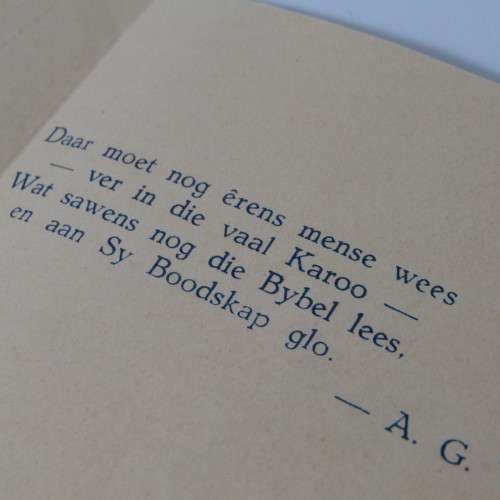 Daar moet nog êrens mense wees
— ver in die vaal Karoo —
Wat sawens nog die Bybel lees,
en aan Sy Boodskap glo.
— A. G.